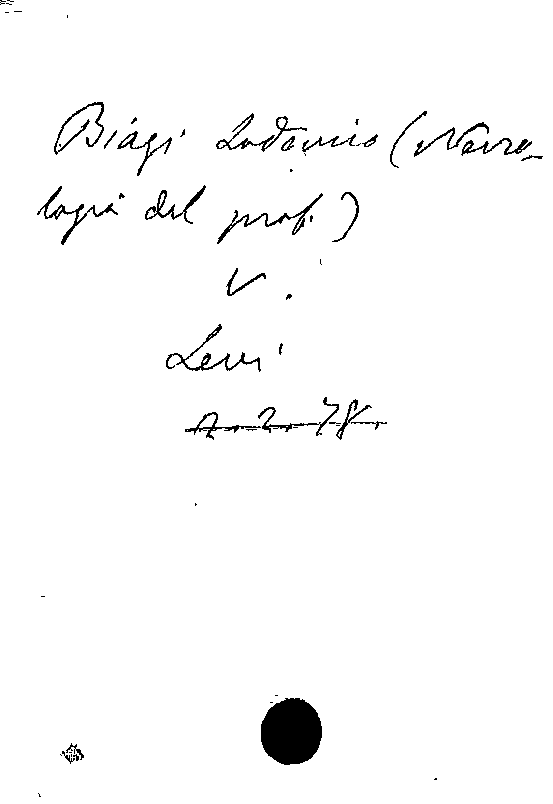 Biagi Lodovico (Necro-
logia del prof.)
V.
Levi
A. 2. 78.